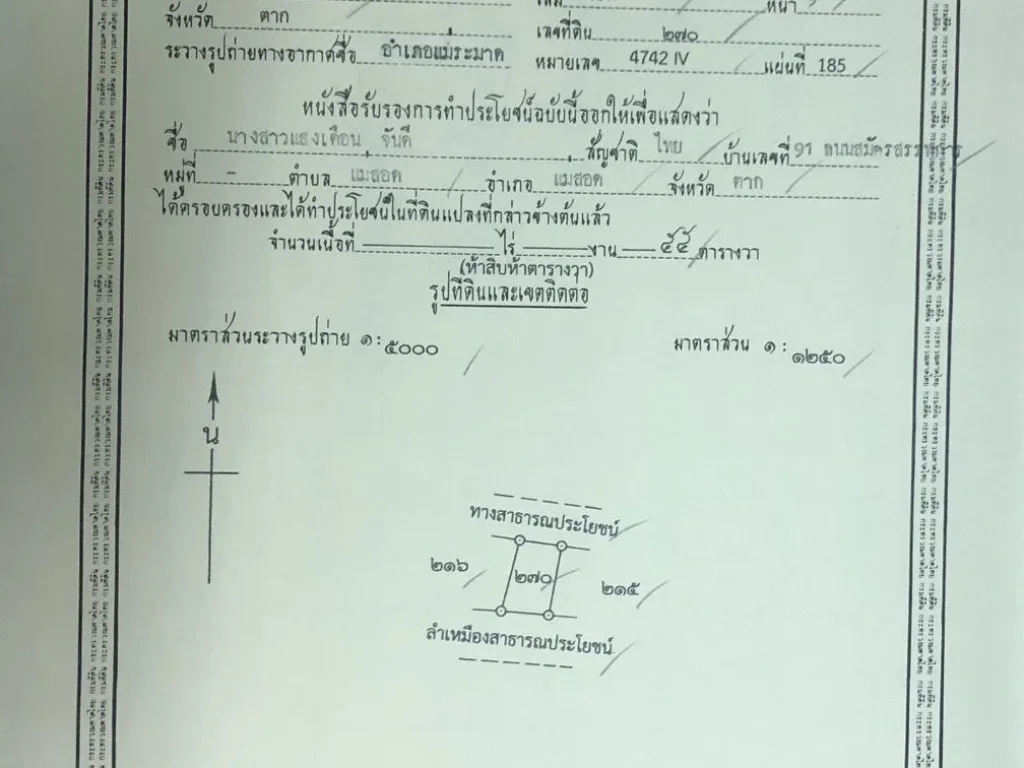 จังหวัด ตาก เลขที่ดิน ๒๗๐
ระวางรูปถ่ายทางอากาศชื่อ อำเภอแม่ระมาด หมายเลข 4742 IV แผ่นที่ 185
หนังสือรับรองการทำประโยชน์ฉบับนี้ออกให้เพื่อแสดงว่า
ชื่อ นางสาวแสงเดือน จันดี สัญชาติ ไทย บ้านเลขที่ 91 ถนนสมัครสรรพการ
หมู่ที่ - ตำบล แม่สอด อำเภอ แม่สอด จังหวัด ตาก
ได้ครอบครองและได้ทำประโยชน์ในที่ดินแปลงที่กล่าวข้างต้นแล้ว
จำนวนเนื้อที่ ไร่ งาน ๕๕ ตารางวา
(ห้าสิบห้าตารางวา)
รูปที่ดินและเขตติดต่อ
มาตราส่วนระวางรูปถ่าย ๑ : ๕๐๐๐ มาตราส่วน ๑ : ๑๒๕๐
น
ทางสาธารณประโยชน์
๒๑๖ ๒๗๐ ๒๑๕
ลำเหมืองสาธารณประโยชน์